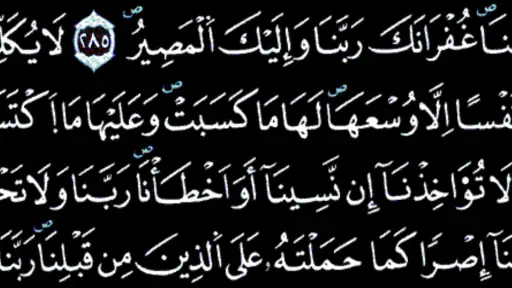 غُفْرَانَكَ رَبَّنَا وَإِلَيْكَ ٱلْمَصِيرُ ٢٨٥ لَا
إِلَّا وُسْعَهَا لَهَا مَا كَسَبَتْ وَعَلَيْهَا مَا
لَا تُؤَاخِذْنَآ إِن نَّسِينَآ أَوْ أَخْطَأْنَا رَبَّنَا وَلَا
إِصْرًا كَمَا حَمَلْتَهُۥ عَلَى ٱلَّذِينَ مِن قَبْلِنَا رَبَّنَا